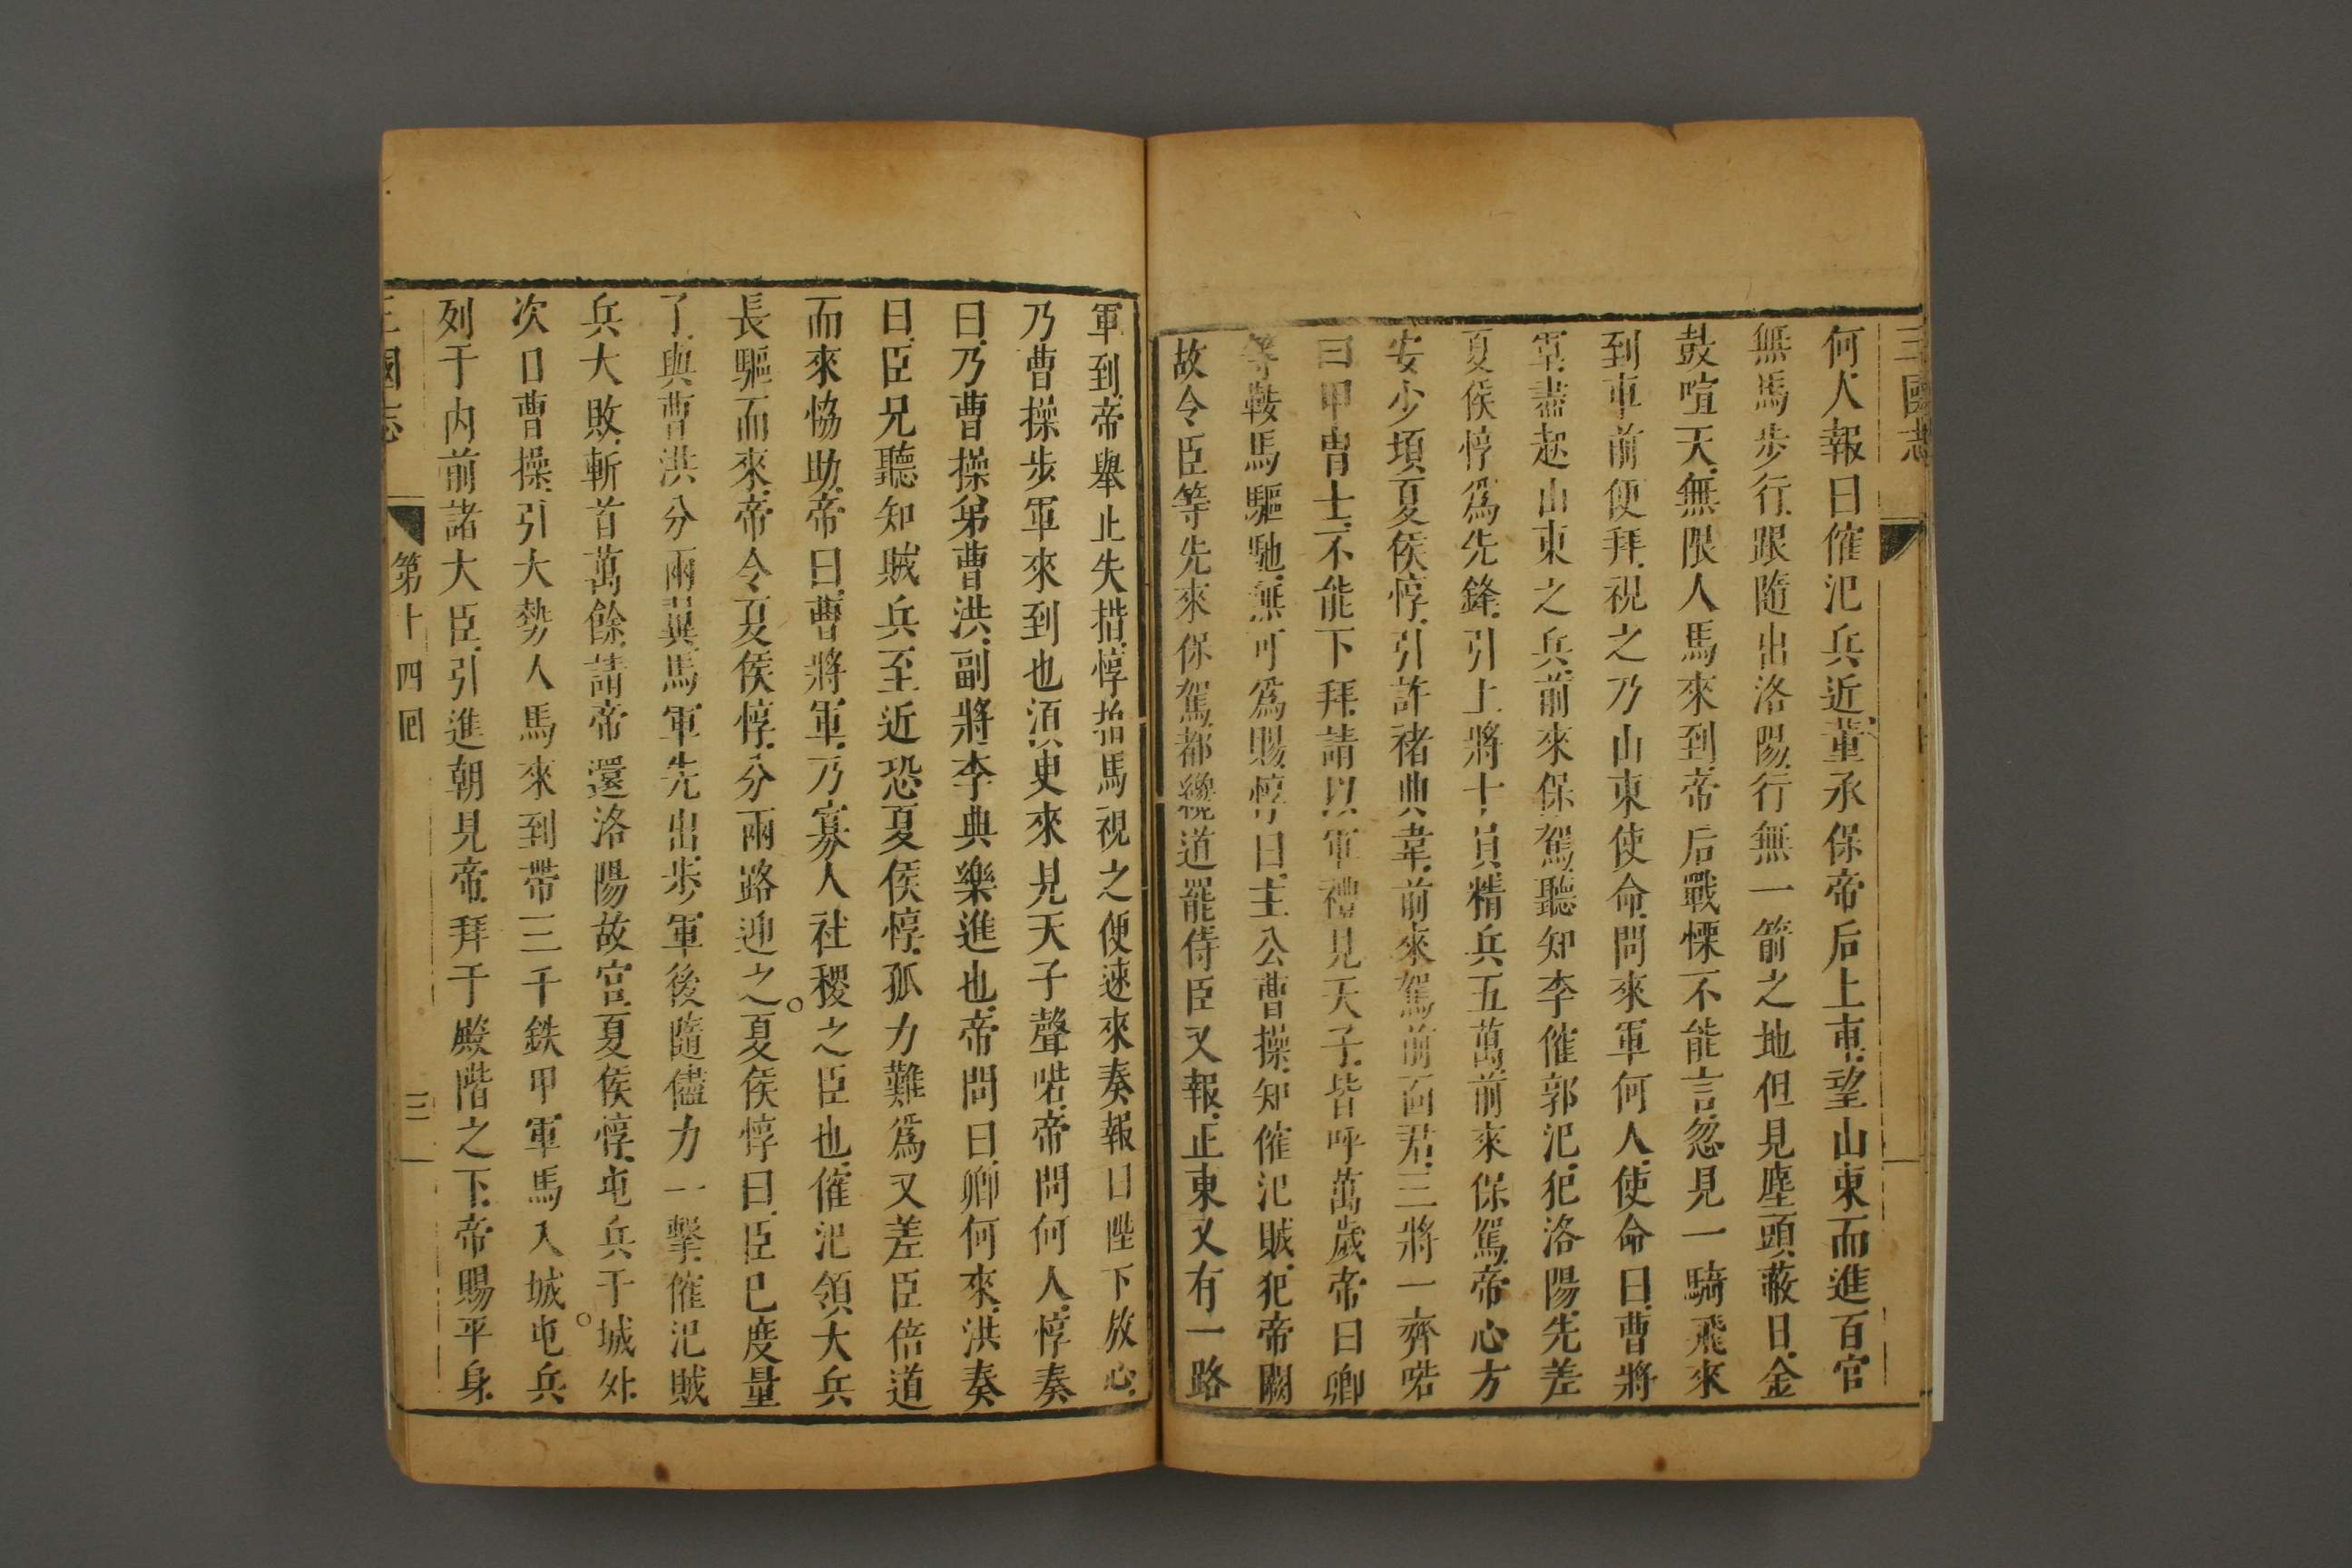 三國志
何人報曰傕汜兵近董承保帝后上車望山東而進百官
無馬步行跟隨出洛陽行無一箭之地但見塵頭蔽日金
鼓喧天無限人馬來到帝后戰慄不能言忽見一騎飛來
到車前便拜視之乃山東使命問來軍何人使命曰曹將
軍盡起山東之兵前來保駕聽知李傕郭汜犯洛陽先差
夏侯惇為先鋒引上將十員精兵五萬前來保駕帝心方
安少頃夏侯惇引許褚典韋前來駕前面君三將一齊喏
曰甲冑士不能下拜請以軍禮見天子皆呼萬歲帝曰卿
等鞍馬驅馳無可為賜惇曰主公曹操知傕汜賊犯帝闕
故令臣等先來保駕都纔道罷侍臣又報正東又有一路
軍到帝舉止失措惇拍馬視之便速來奏報曰陛下放心
乃曹操步軍來到也須臾來見天子聲喏帝問何人惇奏
曰乃曹操弟曹洪副將李典樂進也帝問曰卿何來洪奏
曰臣兄聽知賊兵至近恐夏侯惇孤力難為又差臣倍道
而來恊助帝曰曹將軍乃寡人社稷之臣也傕汜領大兵
長驅而來帝令夏侯惇分兩路迎之夏侯惇曰臣已度量
了與曹洪分兩翼馬軍先出步軍後隨儘力一擊傕汜賊
兵大敗斬首萬餘請帝還洛陽故宮夏侯惇屯兵于城外
次日曹操引大勢人馬來到帶三千鉄甲軍馬入城屯兵
列于內前諸大臣引進朝見帝拜于殿階之下帝賜平身
三國志 第十四回 三